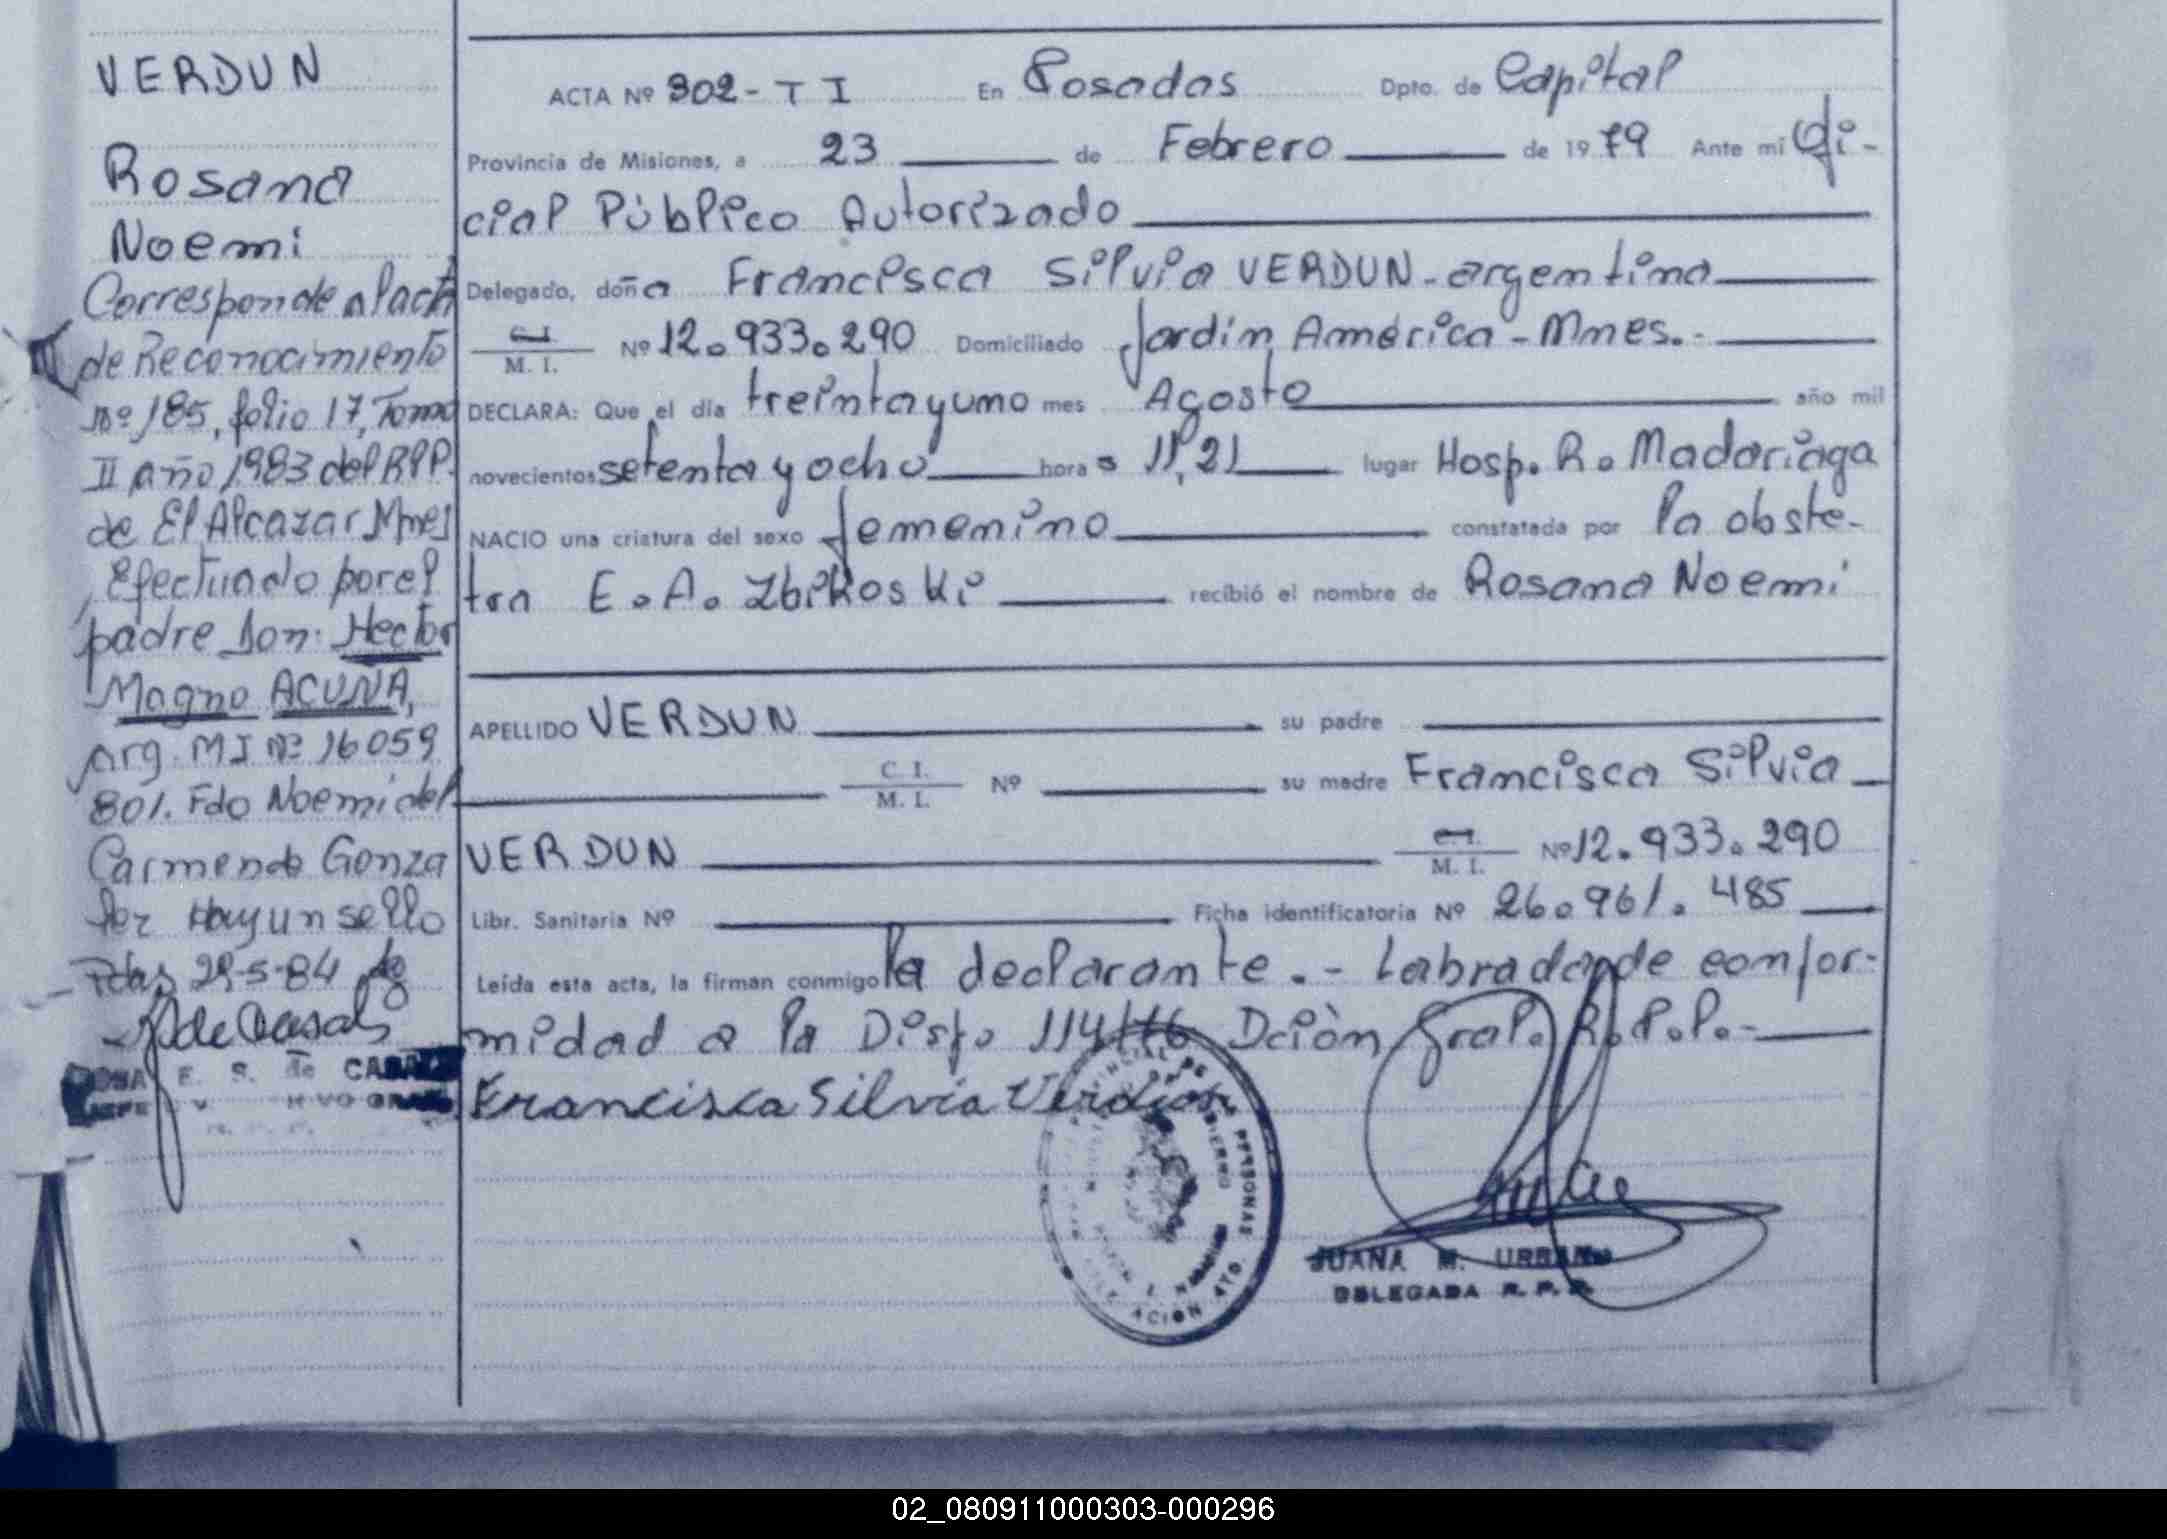 VERDUN
Rosana
Noemi
Corresponde al acta
de Reconocimiento
Nº 185, folio 17, Tomo
II año 1983 del RPP.
de El Alcazar Mnes
Efectuado por el
padre Don: Hector
Magno ACUÑA,
arg. MI Nº 16059
801. Fdo Noemi del
Carmen de Gonza
lez Hay un sello
Pdas 29-5-84
E. S. de CABA
ACTA Nº 302 - T I En Posadas Dpto. de Capital
Provincia de Misiones, a 23 de Febrero de 1979 Ante mi Ofi-
cial Público Autorizado
Delegado, doña Francisca Silvia VERDUN - argentina
C.I. M. I. Nº 12.933.290 Domiciliado Jardín América - Mnes.-
DECLARA: Que el día treinta y uno mes Agosto año mil
novecientos setenta y ocho hora s 11,21 lugar Hosp. R. Madariaga
NACIO una criatura del sexo femenino constatada por la obste-
tra E. A. Zbikoski recibió el nombre de Rosana Noemi
APELLIDO VERDUN su padre
C. I. M. I. Nº su madre Francisca Silvia
VERDUN C.I. M. I. Nº 12.933.290
Libr. Sanitaria Nº Ficha identificatoria Nº 26.961.485
Leída esta acta, la firman conmigo la declarante.- Labrada de confor-
midad a la Disp. 114/76 Dción Gral. R.P.P.-
Francisca Silvia Verdun
JUANA M. URBAN
DELEGADA R. P. P.
02_080911000303-000296